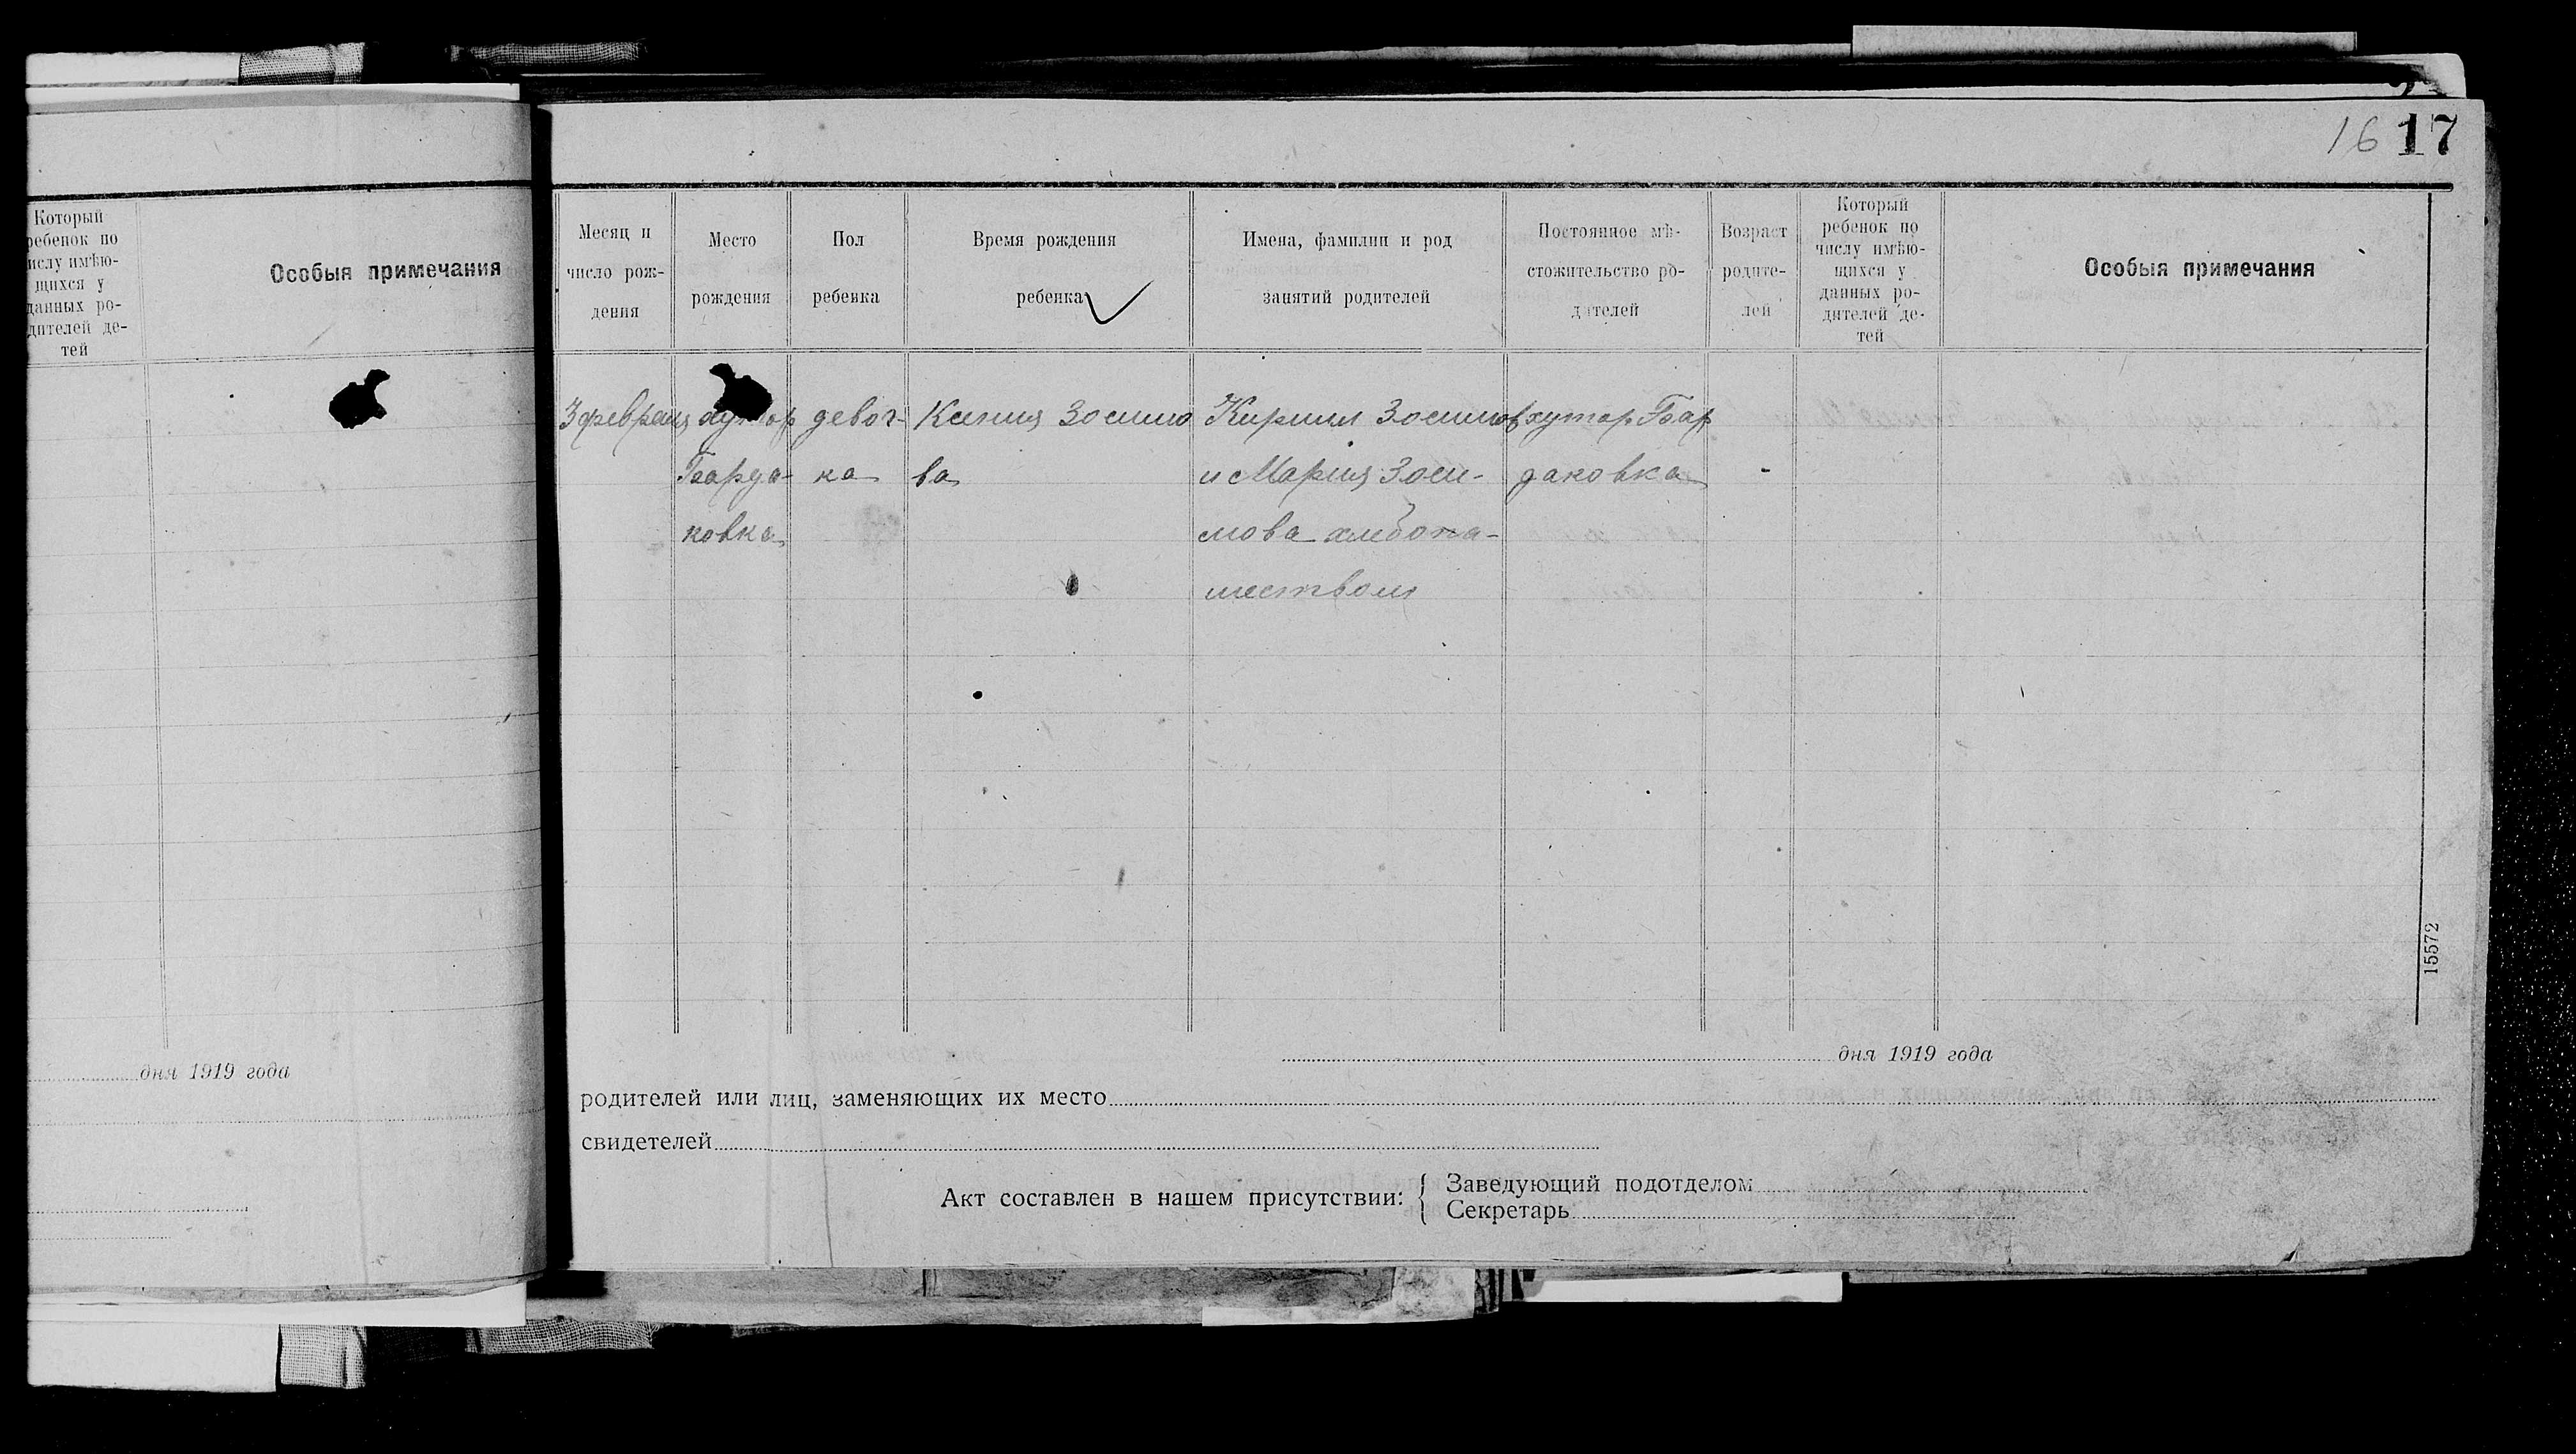 Который
ребенок по
числу имѣю-
щихся у
данных ро-
дителей де-
тей
Особыя примечания
дня 1919 года
16 17
Месяц и
число рож-
дения
Место
рождения
Пол
ребенка
Время рождения
ребенка
Имена, фамилии и род
занятий родителей
Постоянное мѣ-
стожительство ро-
дителей
Возраст
родите-
лей
Который
ребенок по
числу имѣю-
щихся у
данных ро-
дителей де-
тей
Особыя примечания
3 февраля
хутор
Барда-
ковка
девоч-
ка
Ксения Зосимо
ва
Кирилл Зосимов
и Мария Зоси-
мова хлебопа-
шеством
хутор Бар
даковка
-
15572
дня 1919 года
родителей или лиц, заменяющих их место
свидетелей
Акт составлен в нашем присутствии:
Заведующий подотделом
Секретарь